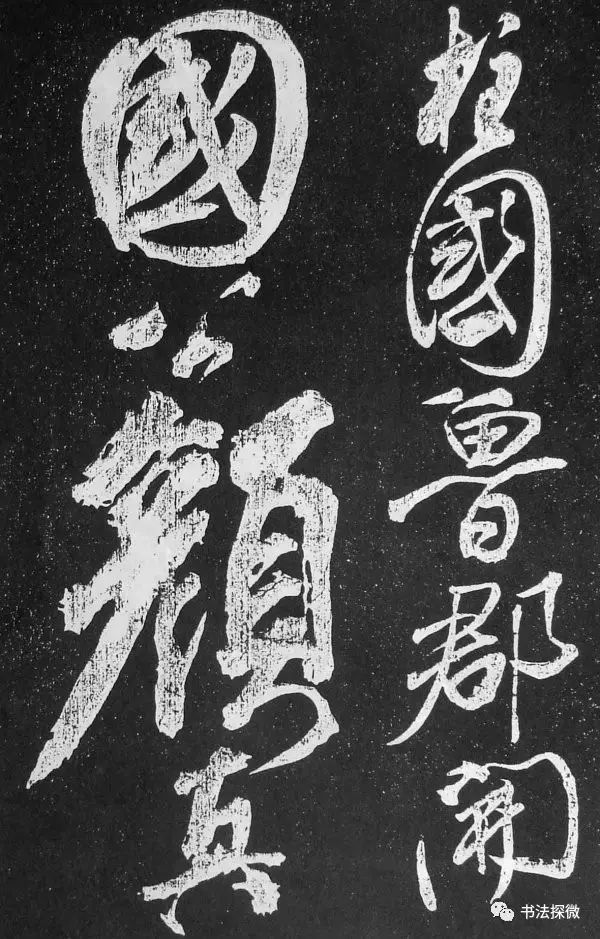 柱國魯郡開
國公顏真
书法探微